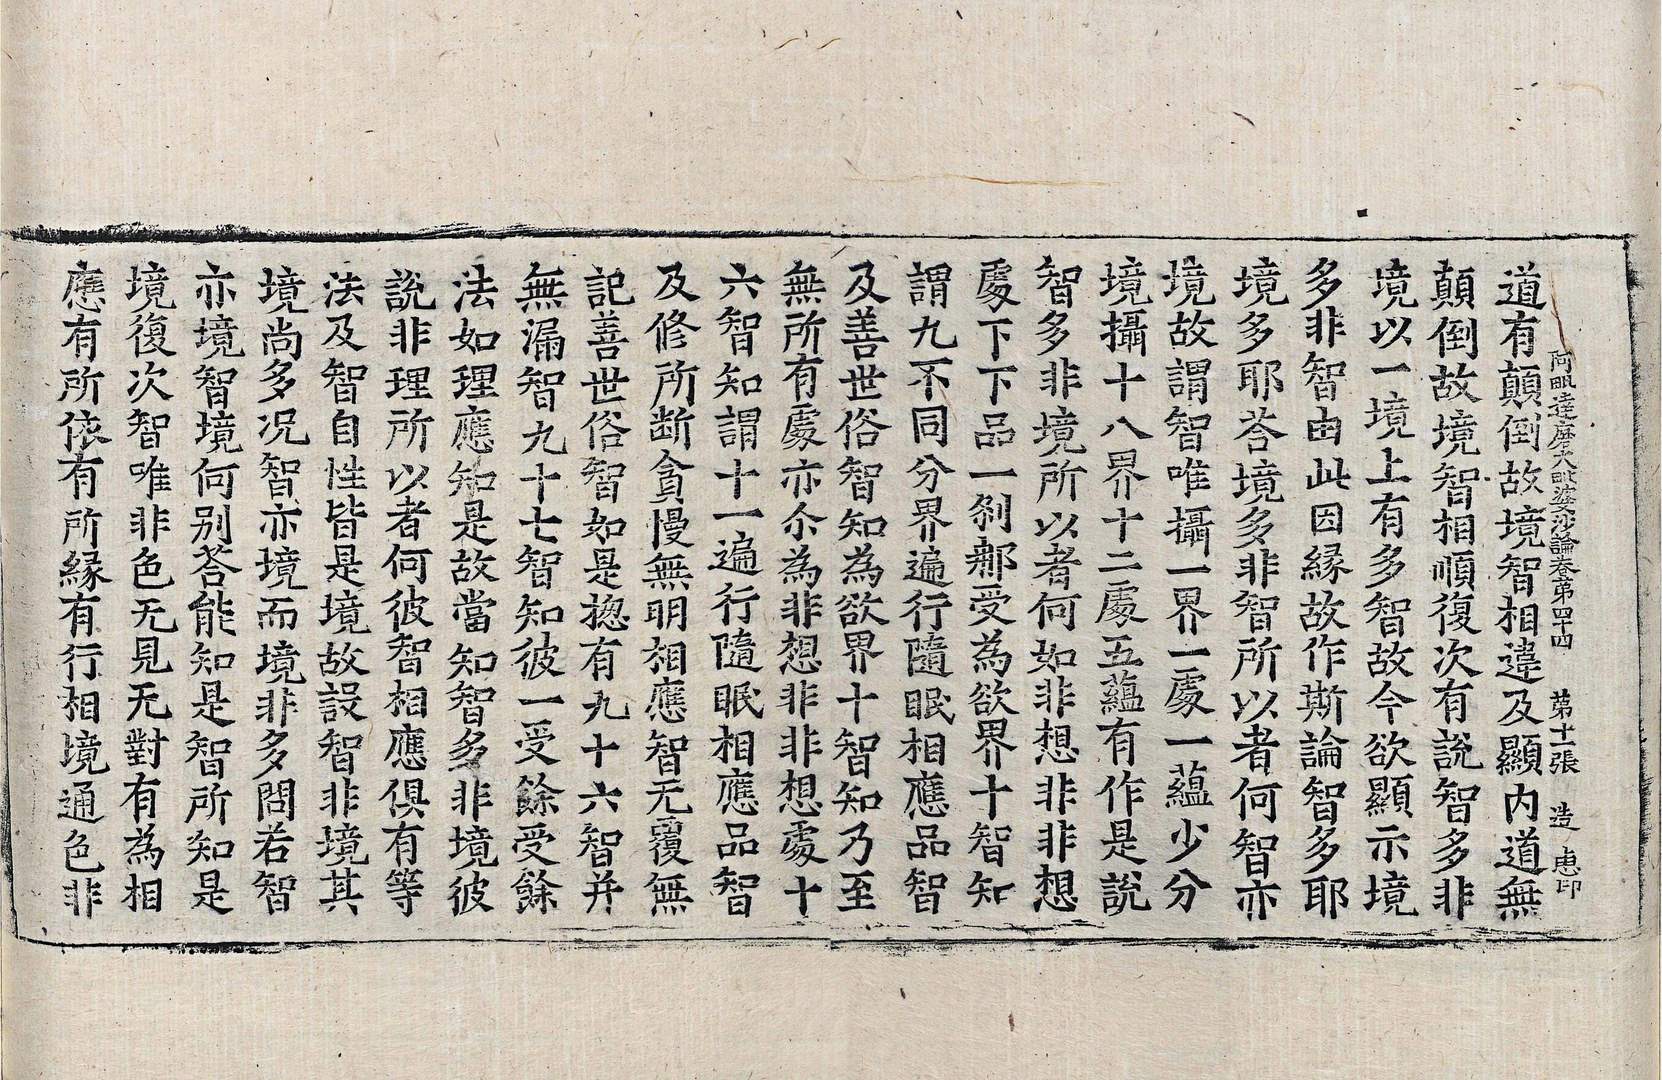 阿毗達磨大毗婆沙論卷第四十四　第十一張　造　惠印
道有顛倒故境智相違及顯內道無
顛倒故境智相順復次有說智多非
境以一境上有多智故今欲顯示境
多非智由此因緣故作斯論智多耶
境多耶荅境多非智所以者何智亦
境故謂智唯攝一界一處一蘊少分
境攝十八界十二處五蘊有作是說
智多非境所以者何如非想非非想
處下下品一刹那受為欲界十智知
謂九不同分界遍行隨眠相應品智
及善世俗智知為欲界十智知乃至
無所有處亦尒為非想非非想處十
六智知謂十一遍行隨眠相應品智
及修所斷貪慢無明相應智无覆無
記善世俗智如是揔有九十六智并
無漏智九十七智知彼一受餘受餘
法如理應知是故當知智多非境彼
說非理所以者何彼智相應俱有等
法及智自性皆是境故設智非境其
境尚多况智亦境而境非多問若智
亦境智境何別荅能知是智所知是
境復次智唯非色无見无對有為相
應有所依有所緣有行相境通色非